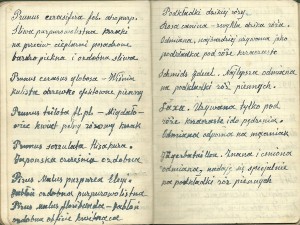 Prunus cerasifera fol. atropurp.
Śliwa purpurowolistna krzaki
na pniu
bardzo piękna i ozdobna śliwa
Prunus cerasus globosa - Wiśnia
kulista drzewko efektowne pienny
Prunus triloba fl. pl. - Migdało-
wiec kwiat pełny różowy krzak
Prunus serrulata Hisakura.
Japonska czereśnia ozdobna
Pirus Malus purpurea Eleyi
jabłoń ozdobna purpurowolistna
Pirus Malus floribunda - jabłoń
ozdobna obficie kwitnąca
Podkładki dzikiej róży.
Rosa canina - zwykła dzika róża.
Odmiana, najbardziej używana jako
podkładka pod róże
Schmids Ideal. Najlepsza odmiana
na podkładki róż piennych.
Laxa. Używana tylko pod
róże do pędzenia.
Odmiana odporna na
Jägerbataillon. Znana i ceniona
odmiana, nadaje się specjalnie
na podkładki róż piennych